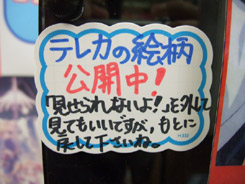 テレカの絵柄
公開中!
「見せられないよ!」を外して
見てもいいですが,もとに
戻して下さいね。